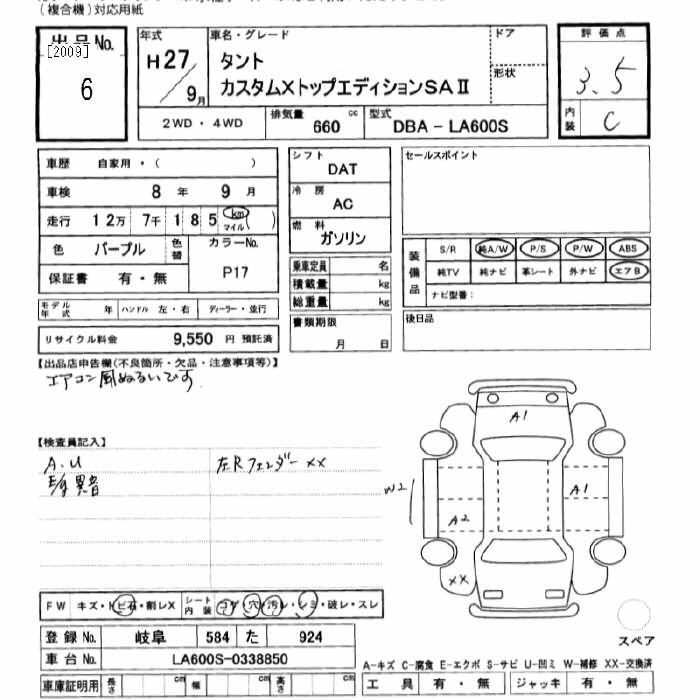 (複合機)対応用紙
出品No.
[2009]
6
年式
H27/9月
車名・グレード
タント
カスタムXトップエディションSAⅡ
ドア
形状
評価点
3.5
内装
C
2WD・4WD
排気量
660 cc
型式
DBA-LA600S
車歴 自家用・( )
車検 8年 9月
走行 12万 7千 185 km マイル( )
色 パープル
色替
カラーNo.
P17
保証書 有・無
モデル年式 年
ハンドル 左・右
ディーラー・並行
リサイクル料金 9,550 円 預託済
シフト
DAT
冷房
AC
燃料
ガソリン
乗車定員 名
積載量 kg
総重量 kg
書類期限
月 日
セールスポイント
装備品
S/R 純A/W P/S P/W ABS
純TV 純ナビ 革シート 外ナビ エアB
ナビ型番:
後日品
【出品店申告欄(不良箇所・欠品・注意事項等)】
エアコン風ぬるいです
【検査員記入】
A.U
左Rフェンダーxx
異音
A1
W2
A2
A1
xx
スペア
FW キズ・トビ石・割レX
シート内装 コゲ・穴・汚レ・シミ・破レ・スレ
登録No. 岐阜 584 た 924
車台No. LA600S-0338850
車庫証明用 長さ cm 幅 cm 高さ cm
A-キズ C-腐食 E-エクボ S-サビ U-凹ミ W-補修 XX-交換済
工具 有・無 ジャッキ 有・無